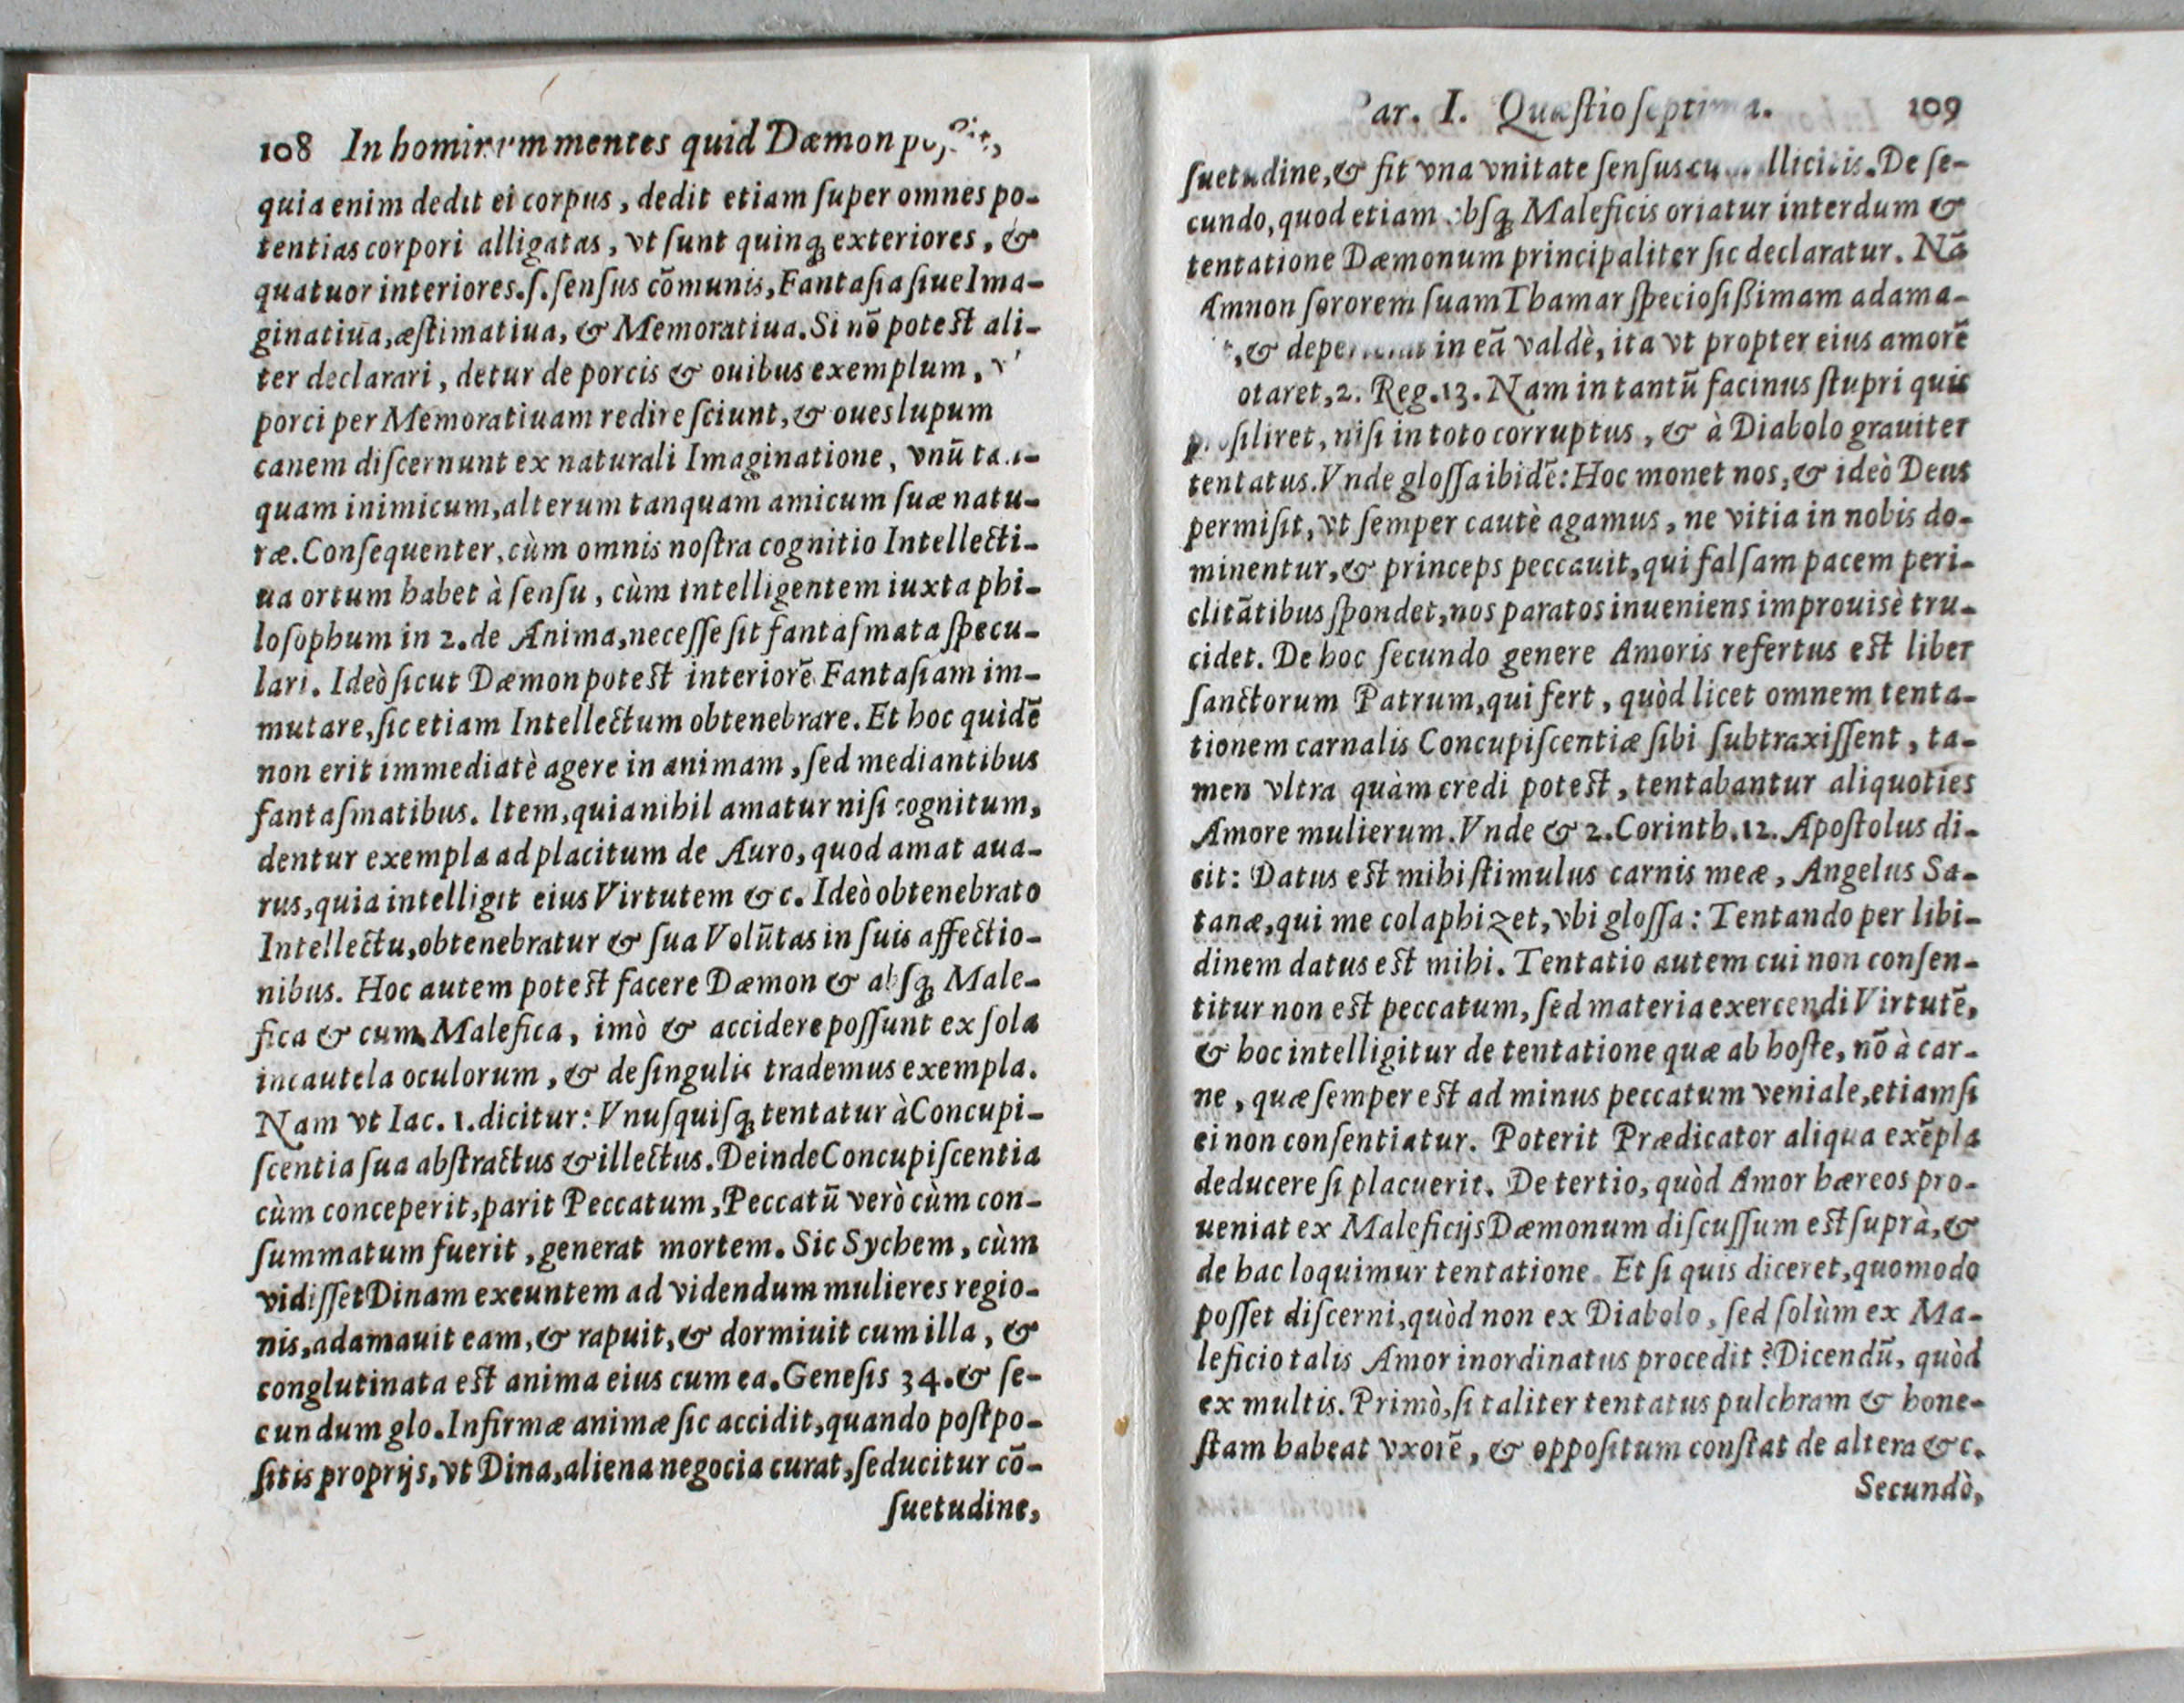 108 In hominum mentes quid Dæmon possit,
quia enim dedit ei corpus, dedit etiam ſuper omnes po-
tentias corpori alligatas, vt ſunt quinq; exteriores, &
quatuor interiores.ſ.ſenſus cõmunis, Fantaſia ſiue Ima-
ginatiua, æſtimatiua, & Memoratiua. Si nõ poteſt ali-
ter declarari, detur de porcis & ouibus exemplum,
porci per Memoratiuam redire ſciunt, & oues lupum
canem diſcernunt ex naturali Imaginatione, vnũ tan-
quam inimicum, alterum tanquam amicum ſuæ natu-
ræ. Conſequenter, cùm omnis noſtra cognitio Intellecti-
ua ortum habet à ſenſu, cùm intelligentem iuxta phi-
loſophum in 2. de Anima, neceſſe ſit fantaſmata ſpecu-
lari. Ideò ſicut Dæmon poteſt interiorẽ Fantaſiam im-
mutare, ſic etiam Intellectum obtenebrare. Et hoc quidẽ
non erit immediatè agere in animam, ſed mediantibus
fantaſmatibus. Item, quia nihil amatur niſi cognitum,
dentur exempla ad placitum de Auro, quod amat aua-
rus, quia intelligit eius Virtutem &c. Ideò obtenebrato
Intellectu, obtenebratur & ſua Volũtas in ſuis affectio-
nibus. Hoc autem poteſt facere Dæmon & abſq; Male-
fica & cum Malefica, imò & accidere poſſunt ex ſola
incautela oculorum, & de ſingulis trademus exempla.
Nam vt Iac. 1. dicitur: Vnuſquiſq; tentatur à Concupi-
ſcentia ſua abſtractus & illectus. Deinde Concupiſcentia
cùm conceperit, parit Peccatum, Peccatũ verò cùm con-
ſummatum fuerit, generat mortem. Sic Sychem, cùm
vidiſſet Dinam exeuntem ad videndum mulieres regio-
nis, adamauit eam, & rapuit, & dormiuit cum illa, &
conglutinata eſt anima eius cum ea. Geneſis 34. & ſe-
cundum glo. Infirmæ animæ ſic accidit, quando poſtpo-
ſitis proprijs, vt Dina, aliena negocia curat, ſeducitur cõ-
ſuetudine,
Par. I. Quæſtio ſeptima. 109
ſuetudine, & fit vna vnitate ſenſus cum illicitis. De ſe-
cundo, quod etiam abſq; Maleficis oriatur interdum &
tentatione Dæmonum principaliter ſic declaratur. Nã
Amnon ſororem ſuam Thamar ſpecioſißimam adama-
& deperierat in eã valdè, ita vt propter eius amorẽ
otaret, 2. Reg. 13. Nam in tantũ facinus ſtupri quis
proſiliret, niſi in toto corruptus, & à Diabolo grauiter
tentatus. Vnde gloſſa ibidẽ: Hoc monet nos, & ideò Deus
permiſit, vt ſemper cautè agamus, ne vitia in nobis do-
minentur, & princeps peccauit, qui falſam pacem peri-
clitãtibus ſpondet, nos paratos inueniens improuisè tru-
cidet. De hoc ſecundo genere Amoris refertus eſt liber
ſanctorum Patrum, qui fert, quòd licet omnem tenta-
tionem carnalis Concupiſcentiæ ſibi ſubtraxiſſent, ta-
men vltra quàm credi poteſt, tentabantur aliquoties
Amore mulierum. Vnde & 2. Corinth. 12. Apoſtolus di-
cit: Datus eſt mihi ſtimulus carnis meæ, Angelus Sa-
tanæ, qui me colaphizet, vbi gloſſa: Tentando per libi-
dinem datus eſt mihi. Tentatio autem cui non conſen-
titur non eſt peccatum, ſed materia exercendi Virtutẽ,
& hoc intelligitur de tentatione quæ ab hoſte, nõ à car-
ne, quæ ſemper eſt ad minus peccatum veniale, etiamſi
ei non conſentiatur. Poterit Prædicator aliqua exẽpla
deducere ſi placuerit. De tertio, quòd Amor hæreos pro-
ueniat ex Maleficijs Dæmonum diſcuſſum eſt ſuprà, &
de hac loquimur tentatione. Et ſi quis diceret, quomodo
poſſet diſcerni, quòd non ex Diabolo, ſed ſolùm ex Ma-
leficio talis Amor inordinatus procedit? Dicendũ, quòd
ex multis. Primò, ſi taliter tentatus pulchram & hone-
ſtam habeat vxorẽ, & oppoſitum conſtat de altera &c.
Secundò,